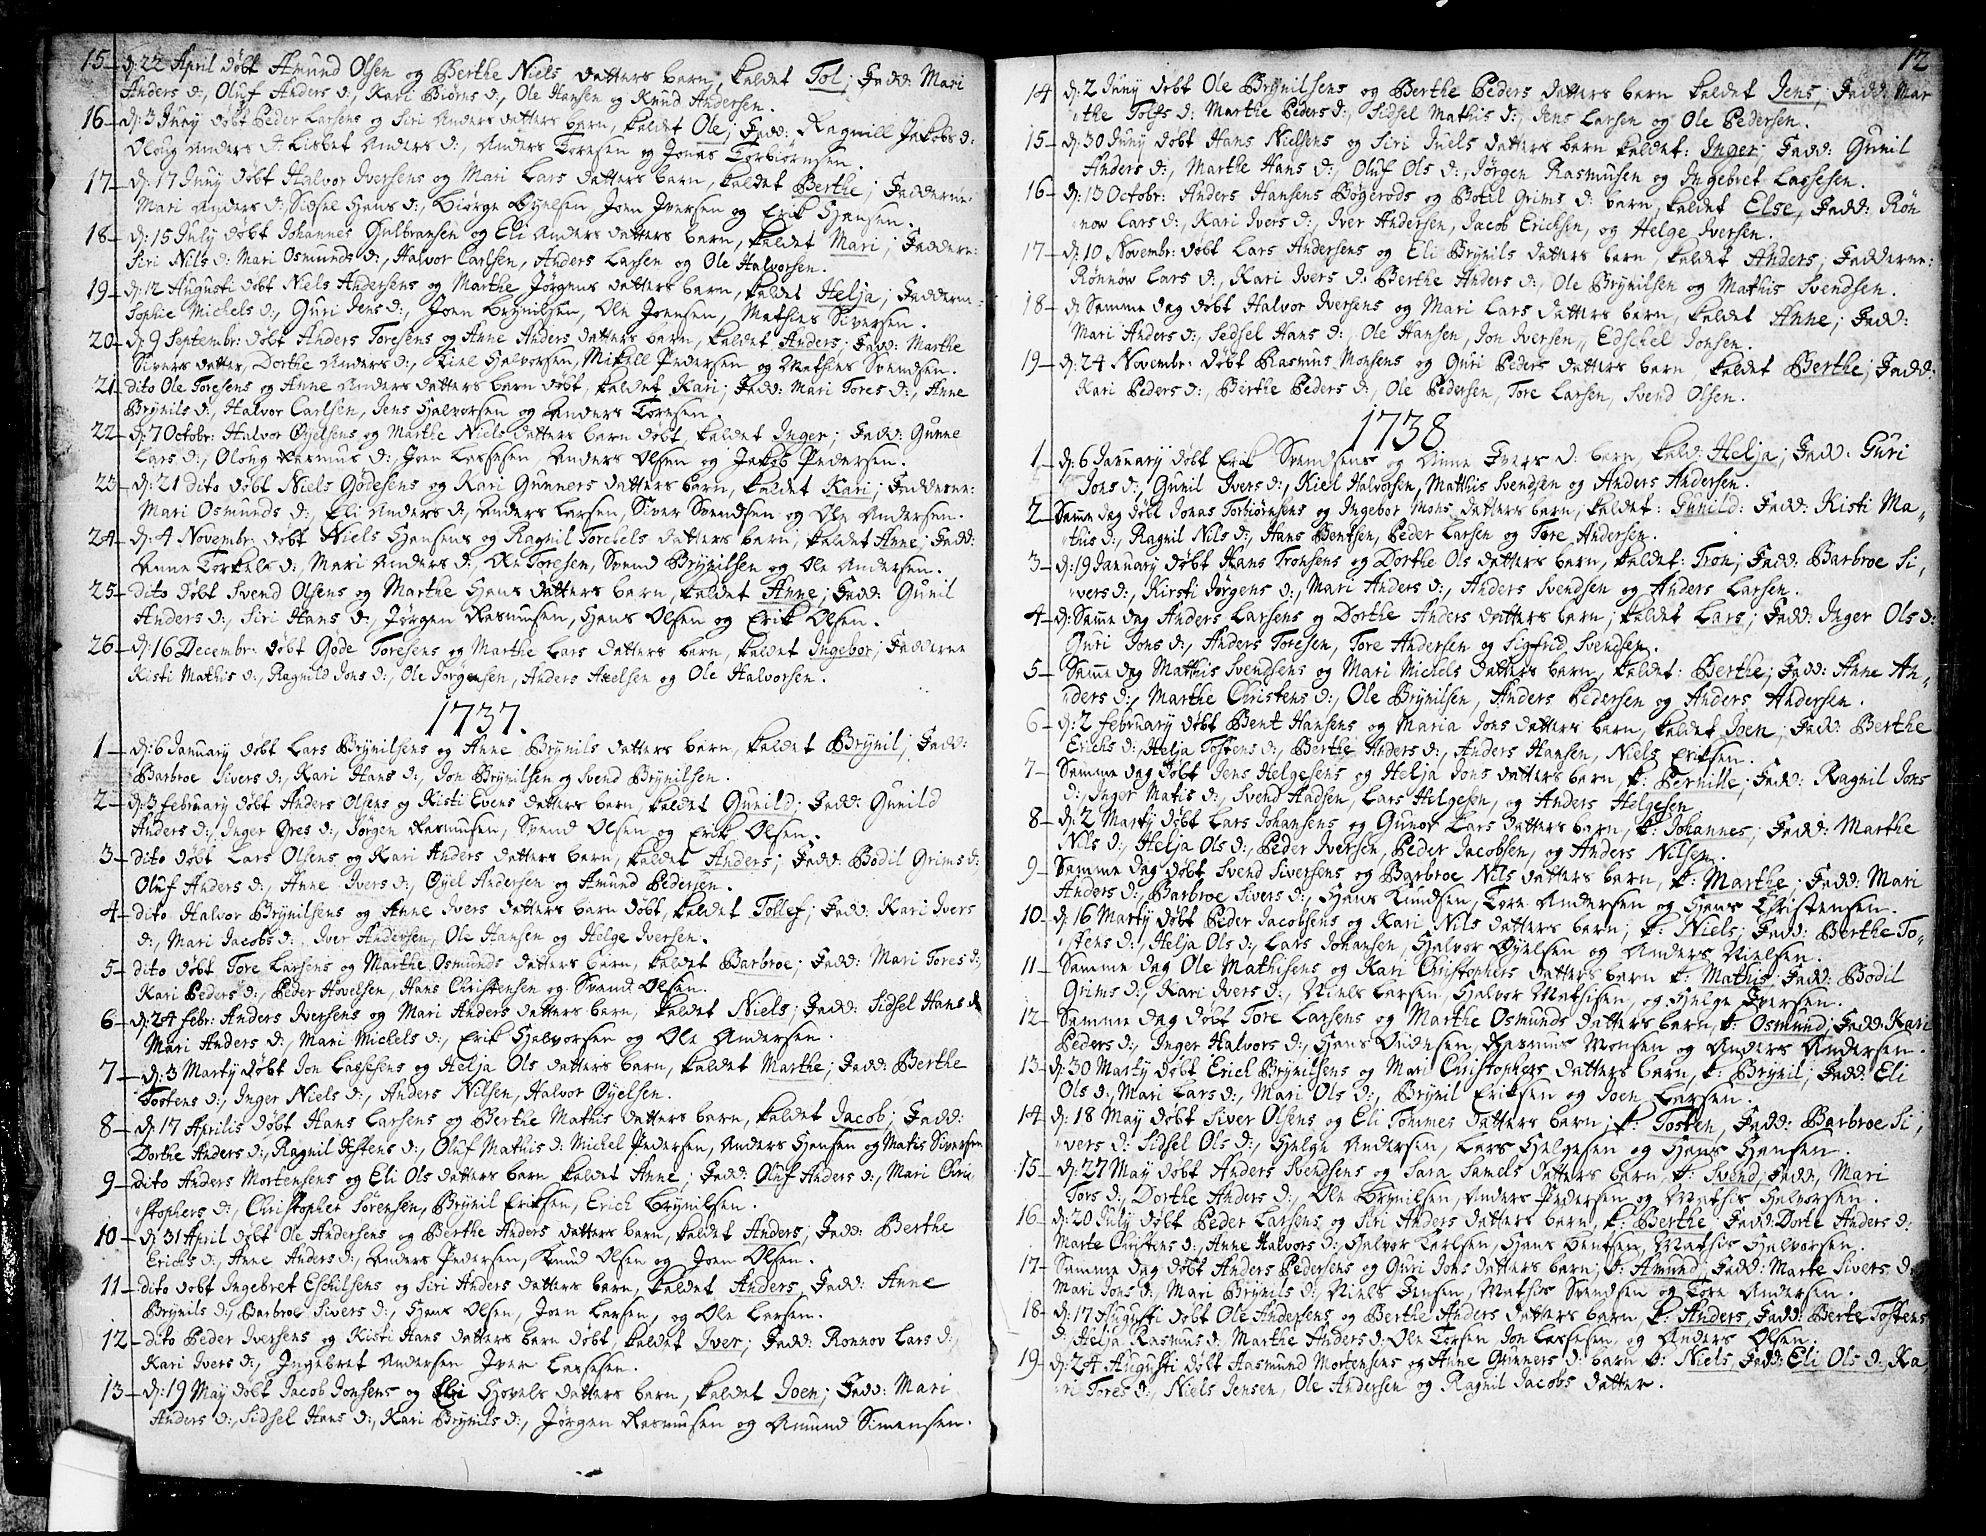 15 d: 22 April døbt Amund Olsen og Berthe Niels datters barn, kaldet Tol; Fadd: Mari
Anders d:, Oluf Anders d:, Kari Biørns d:, Ole Hansen og Knud Andersen.
16 d: 3 Juny døbt Peder Larsens og Siri Anders datters barn, kaldet Ole; Fadd: Ragnill Jakobs d:
Oloug Anders d: Lisbet Anders d:, Anders Toresen og Jonas Torbiørnsen.
17 d: 17 Juny døbt Halvor Iversens og Mari Lars datters barn, kaldet Berthe; Fadderne:
Mari Anders d: Sidsel Hans d:, Joen Iversen og Erik Hansen.
18 d: 15 July døbt Johannes Gulbransen og Eli Anders datters barn, kaldet Mari; Faddere:
Siri Nils d: Mari Osmunds d:, Halvor Carlsen, Anders Larsen og Ole Halvorsen.
19 d: 12 Augusti døbt Niels Andersens og Marthe Jørgens datters barn, kaldet Helja; Fadderne
Sophie Michels d:, Guri Jens d:, Joen Brynilsen, Ole Joensen, Mathis Siversen.
20 d: 9 Septembr: døbt Anders Toresens og Anne Anders datters barn, kaldet Anders; Fadd: Marthe
Sivers datter, Dorthe Anders d:, Kiel Halvorsen, Mikkill Pedersen og Mathis Svendsen.
21 dito Ole Toresens og Anne Anders datters barn døbt, kaldet Kari; Fadd: Mari Tores d:, Anne
Brynils d:, Halvor Carlsen, Jens Halvorsen og Anders Toresen.
22 d: 7 Octobr: Halvor Øyelsens og Marthe Niels datters barn døbt, kaldet Inger; Fadd: Gunne
Lars d:, Oloug Rasmus d:, Joen Lassesen, Anders Olsen og Jakob Pedersen.
23 d: 21 dito døbt Niels Gødesens og Kari Gunners datters barn, kaldet Kari; Fadderne:
Mari Osmunds d:, Eli Anders d:, Anders Larsen, Siver Svendsen og Ole Andersen.
24 d: 4 Novembr: døbt Niels Hansens og Ragnil Torchels datters barn, kaldet Anne; Fadd:
Anne Torkels d:, Mari Anders d:, Ole Toresen, Svend Brynilsen og Ole Andersen.
25 dito døbt Svend Olsens og Marthe Hans datters barn, kaldet Anne; Fadd: Gunil
Anders d:, Siri Hans d:, Jørgen Rasmusen, Hans Olsen og Erik Olsen.
26 d: 16 Decembr: døbt Gøde Toresens og Marthe Lars datters barn, kaldet Ingebor; Fadderne
Kisti Mathis d:, Ragnild Jons d:, Ole Jørgensen, Anders Axelsen og Ole Halvorsen.
1737.
1 d: 6 January døbt Lars Brynilsens og Anne Brynils datters barn, kaldet Brynil; Fadd:
Barbroe Sivers d:, Kari Hans d:, Jon Brynilsen og Svend Brynilsen.
2 d: 3 February døbt Anders Olsens og Kisti Evens datters barn, kaldet Gunild; Fadd: Gunild
Anders d:, Inger Øres d:, Jørgen Rasmusen, Svend Olsen og Erik Olsen.
3 dito døbt Lars Olsens og Kari Anders datters barn, kaldet Anders; Fadd: Bodil Grims d:
Oluf Anders d:, Anne Ivers d:, Øyel Andersen og Amund Pedersen.
4 dito Halvor Brynilsens og Anne Ivers datters barn døbt, kaldet Tollef; Fadd: Kari Ivers
d:, Mari Jacobs d:, Iver Andersen, Ole Hansen og Helge Iversen.
5 dito døbt Tore Larsens og Marthe Osmunds datters barn, kaldet Barbroe; Fadd: Mari Tores d:,
Kari Peders d:, Peder Hovelsen, Hans Christensen og Svend Olsen.
6 d: 24 febr: Anders Iversens og Mari Anders datters barn, kaldet Niels; Fadd: Sidsel Hans d:
Mari Anders d:, Mari Michels d:, Erik Halvorsen og Ole Andersen.
7 d: 3 Marty døbt Jon Lassesens og Helja Ols datters barn, kaldet Marthe; Fadd: Berthe
Tostens d:, Inger Niels d:, Anders Nilsen, Halvor Øyelsen.
8 d: 17 Aprilis døbt Hans Larsens og Berthe Mathis datters barn, kaldet Jacob; Fadd:
Dorthe Anders d:, Ragnil d:, Oluf Mathis d: Michel Pedersen, Anders Hansen og Matis Siversen
9 dito Anders Mortensens og Eli Ols datters barn kaldet Anne; Fadd: Oluf Anders d:, Mari Chri
stophers d:, Christopher Sørensen, Brynil Eriksen, Erich Brynilsen.
10 d: 31 April døbt Ole Andersens og Berthe Anders datters barn, kaldet Anders, Fadd: Berthe
Erichs d:, Anne Anders d:, Anders Pedersen, Knud Olsen og Joen Olsen.
11 dito døbt Ingebret Eschilsens og Siri Anders datters barn, kaldet Anders, Fadd: Anne
Brynils d:, Barbroe Sivers d:, Hans Olsen, Joen Larsen, og Ole Larsen.
12 dito Peder Iversens og Kisti Hans datters barn døbt, kaldet Iver; Fadd: Ronnov Lars d:,
Kari Ivers d:, Ingebret Andersen Iver Lassesen.
13 d: 19 May døbt Jacob Jonsens og Eli Hovels datters barn, kaldet Joen; Fadd: Mari
Anders d:, Sidsel Hans d:, Kari Brynils d:, Jørgen Rasmusen og Amund Simensen.
12
14 d: 2 Juny døbt Ole Brynilsens og Berthe Peders datters barn kaldet Jens, Fadd: Mar
the Tolfs d: Marthe Peders d:, Sidsel Mathis d:, Jens Larsen og Ole Pedersen.
15 d: 30 Juny døbt Hans Nielsens og Siri Juels datters barn kaldet: Inger; Fadd: Gunil
Anders d:, Marthe Hans d:, Oluf Ols d:, Jørgen Rasmusen og Ingebret Lassesen.
16 d: 13 Octobr: Anders Hansens Bøgerods og Botil Grims d: barn, kaldet Else, Fadd: Røn
now Lars d:, Kari Ivers d:, Iver Andersen, Jacob Erichsen, og Helge Iversen.
17 d: 10 Novembr: døbt Lars Andersens og Eli Brynils datters barn, kaldet Anders; Fadderne:
Rønnow Lars d:, Kari Ivers d: Berthe Anders d:, Ole Brynilsen og Mathis Svendsen.
18 de Samme dag døbt Halvor Iversens og Mari Lars datters barn, kaldet Anne; Fadd:
Mari Anders d:, Sedsel Hans d:, Ole Hansen, Jon Iversen, Edschel Jonsen.
19 d: 24 Novembr: døbt Rasmus Monsens og Guri Peders datters barn, kaldet Berthe; Fadd:
Kari Peders d:, Berthe Peders d:, Ole Pedersen, Tore Larsen, Svend Olsen.
1738
1 d: 6 January døbt Erik Svendsens og Anne Ivers d: barn, kald: Helja; Fadd: Guri
Jons d:, Gunil Ivers d:, Kiell Halvorsen, Matthis Svendsen og Anders Andersen.
2 Samme dag døbt Jonas Torbiørnsens og Ingebor Mons datters barn, kaldet: Gunild: Fadd: Kisti Ma,,
this d:, Ragnil Nils d:, Hans Bentsen, Peder Larsen og Tore Andersen.
3 d: 19 January døbt Hans Tronsens og Dorthe Ols datters barn, kaldet: Tron; Fadd: Barbroe Si,
vers d:, Kirsti Jørgens d:, Mari Anders d:, Anders Svendsen og Anders Larsen.
4 d: Samme dag Anders Larsens og Dorthe Anders datters barn, kaldet Lars; Fadd: Inger Ols d:
Guri Jons d:, Anders Toresen, Tore Andersen og Sigfrid Svendsen.
5 Samme dag Matthis Svendsens og Mari Michels datters barn, kaldet: Berthe; Fadd: Anne An,,
ders d:, Marthe Christens d:, Ole Brynilsen, Anders Pedersen og Anders Andersen.
6 d: 2 february døbt Bent Hansens og Maria Jons datters barn, kaldet Joen; Fadd: Berthe
Erichs d:, Helja Tostens d:, Berthe Anders d:, Anders Hansen, Niels Eriksen.
7 Samme dag døbt Jens Helgesens og Helja Jons datters barn, k: Pernille; Fadd: Ragnil Jons
d:, Inger Matis d:, Svend Hadsen, Lars Helgesen, og Anders Helgesen
8 d: 2 Marty døbt Lars Johansens og Gunor Lars datters barn, k: Johannes; Fadd: Marthe
Nils d:, Helja Ols d:, Peder Iversen, Peder Jacobsen, og Anders Nilsen.
9 Samme dag døbt Svend Siversens og Barbroe Nils datters barn, k: Marthe; Fadd: Mari
Anders d:, Barbroe Sivers d:, Hans Knudsen, Tore Andersen og Hans Christensen.
10 d: 16 Marty døbt Peder Jacobsens og Kari Nils datters barn; k: Niels; Fadd: Berthe To,,
stens d:, Helja Ols d:, Lars Johansen, Halvor Øyelsen og Anders Nielsen.
11 Samme dag Ole Mathisens og Kari Christophers datters barn k: Mathis; Fadd: Bodil
Grims d:, Kari Ivers d:, Niels Larsen, Halvor Mathisen, og Helge Iversen.
12 Samme dag døbt Tore Larsens og Marthe Osmunds datters barn, k: Osmund; Fadd: Kari
Peders d:, Inger Halvors d:, Hans Rasmus Monsen og Anders Andersen.
13 d: 30 Marty døbt Erich Brynilsens og Mari Christophers datters barn, k: Brynil; Fadd: Eli
Ols d:, Mari Lars d:, Mari Ols d:, Brynil Eriksen og Joen Larsen.
14 d: 18 May døbt Siver Olsens og Eli Tommes datters barn; k: Tosten, Fadd: Barbroe Si,
vers d: Sidsel Ols d:, Helge Andersen, Lars Helgesen og Hans Hansen.
15 d: 27 May døbt Anders Svendsens og Sara Samels datters barn, k: Svend, Fadd; Mari
Tors d:, Dorthe Anders d:, Ole Brynilsen, Anders Pedersen og Mathis Halvorsen.
16 d: 20 July døbt Peder Larsens og Siri Anders datters barn, k: Berthe; Fadd: Dorte Anders d:
Marte Christens d:, Anne Halvors d:, Halvor Carlsen, Hans Bentsen, Mathis Halvorsen.
17 Samme dag døbt Anders Pedersens og Guri Jons datters barn; k: Amund; Fadd: Marte Sivers d:
Mari Jons d:, Mari Brynils d:, Niels Jensen, Mathis Svendsen og Tore Andersen.
18 d: 17 Augusti døbt Ole Andersens og Berthe Anders datters barn, k: Anders, Fadd: Berte Tostens
d: Helja Rasmus d: Marthe Anders d: Ole Torsen Jon Lassesen, og Anders Olsen.
19 d: 24 Augusti døbt Aasmund Mortensens og Anne Gunners d: barn k: Niels, Fadd: Eli Ols d:, Ka
ri Tores d:, Niels Jensen, Ole Andersen og Ragnil Jacobs datter.